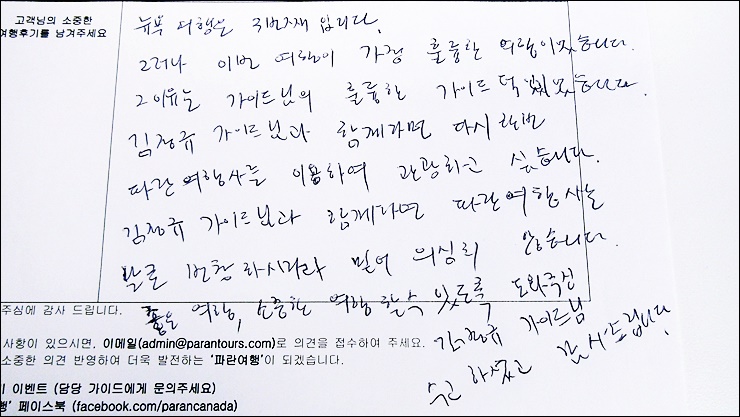 고객님의 소중한
여행후기를 남겨주세요
뉴욕 여행은 3번째 입니다.
그러나 이번 여행이 가장 훌륭한 여행이었습니다.
그 이유는 가이드님의 훌륭한 가이드 덕이었습니다.
김정규 가이드님과 함께라면 다시 한번
파란여행사를 이용하여 관광하고 싶습니다.
김정규 가이드님과 함께라면 파란여행사는
발로 번창 하시리라 믿어 의심치 않습니다.
좋은 여행, 소중한 여행 할 수 있도록 도와주신
김정규 가이드님
수고 하셨고 감사드립니다.
주심에 감사 드립니다.
사항이 있으시면, 이메일(admin@parantours.com)로 의견을 접수하여 주세요.
소중한 의견 반영하여 더욱 발전하는 '파란여행'이 되겠습니다.
이벤트 (담당 가이드에게 문의주세요)
행' 페이스북 (facebook.com/parancanada)